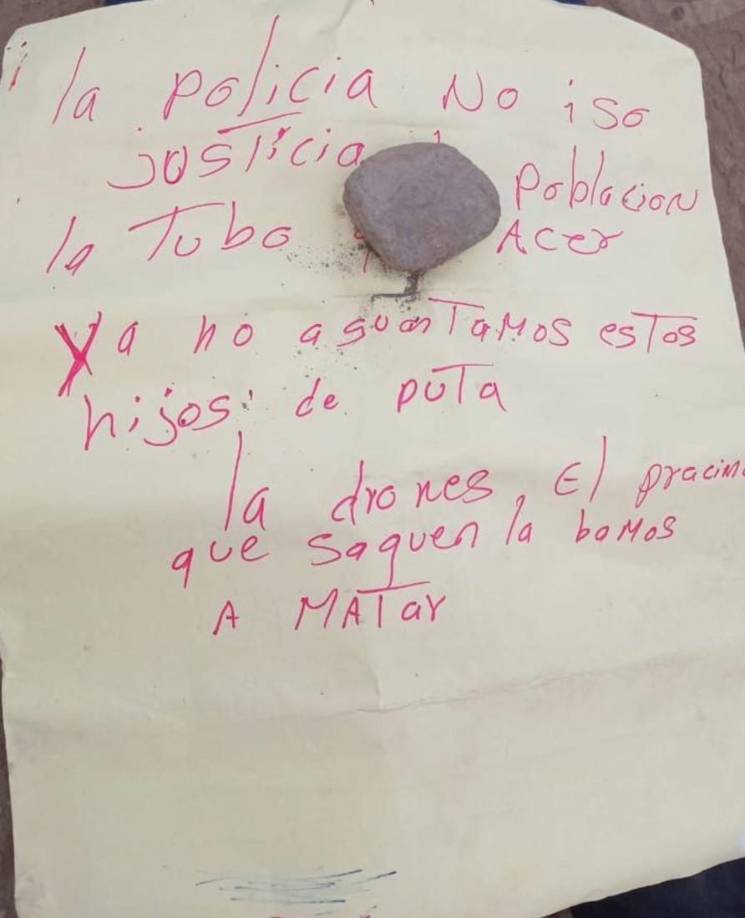 la policia No iso
josticia
Poblacion
la Tubo Acer
Ya no aguanTaMos esTos
hijos de puTa
la drones, El pracim
que saquen la baMos
A MATar